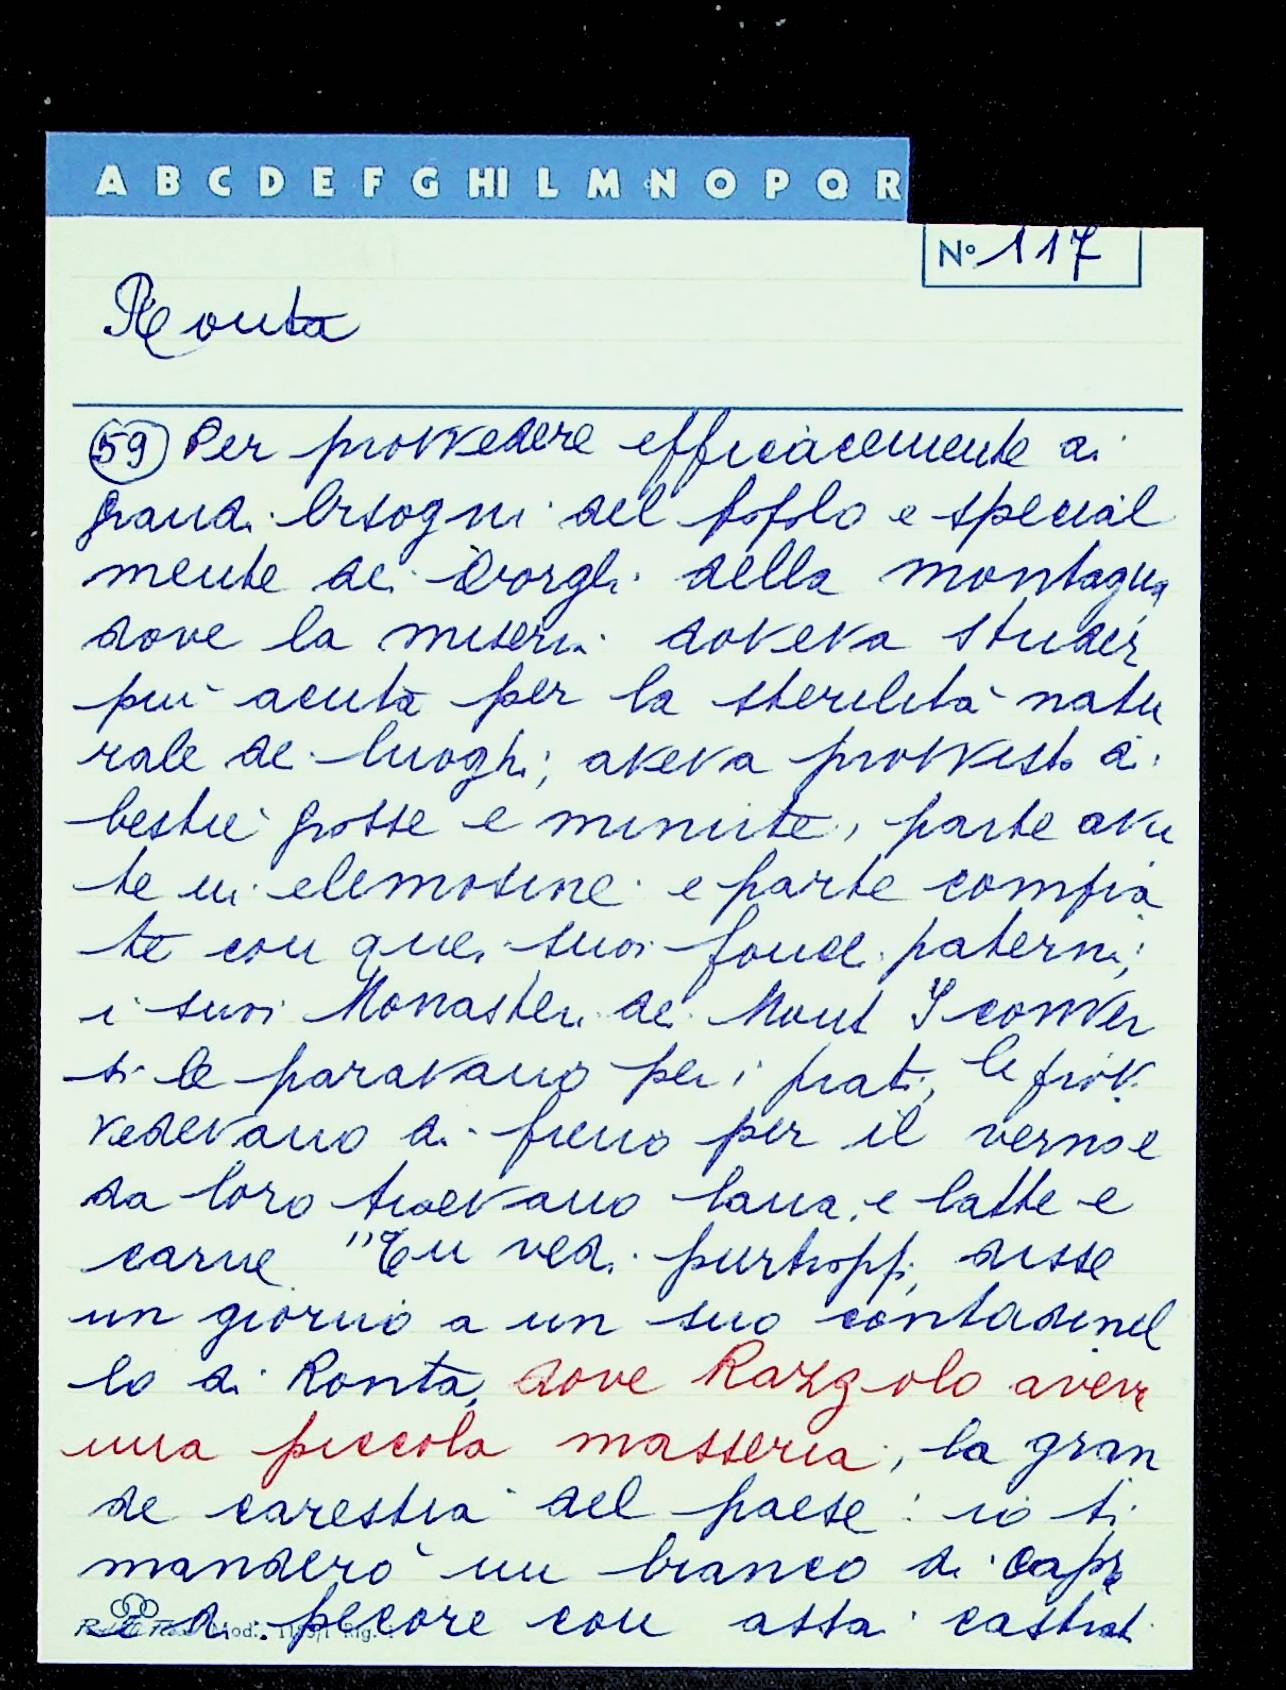 A B C D E F G HI L M N O P Q R
N° 117
Ronta
59 Per provvedere efficacemente ai
grandi bisogni del popolo e special
mente dei Borghi della montagna
dove la miseria doveva
più acuta per la sterilità natu
rale dei luoghi, aveva provvisto di
bestie grosse e minute, parte avu
te in elemosine e parte compra
te con quei suoi fondi paterni;
i suoi Monasteri dei Monti I conver
si le paravano per i prati, le prov
vedevano di fieno per il verno e
da loro traevano lana, e latte e
carne "Tu vedi purtroppo, disse
un giorno a un suo contadinel
lo di Ronta, dove Razzolo aveva
una piccola masseria, la gran
de carestia del paese: io ti
manderò un branco di capre
e di pecore con assai castrati